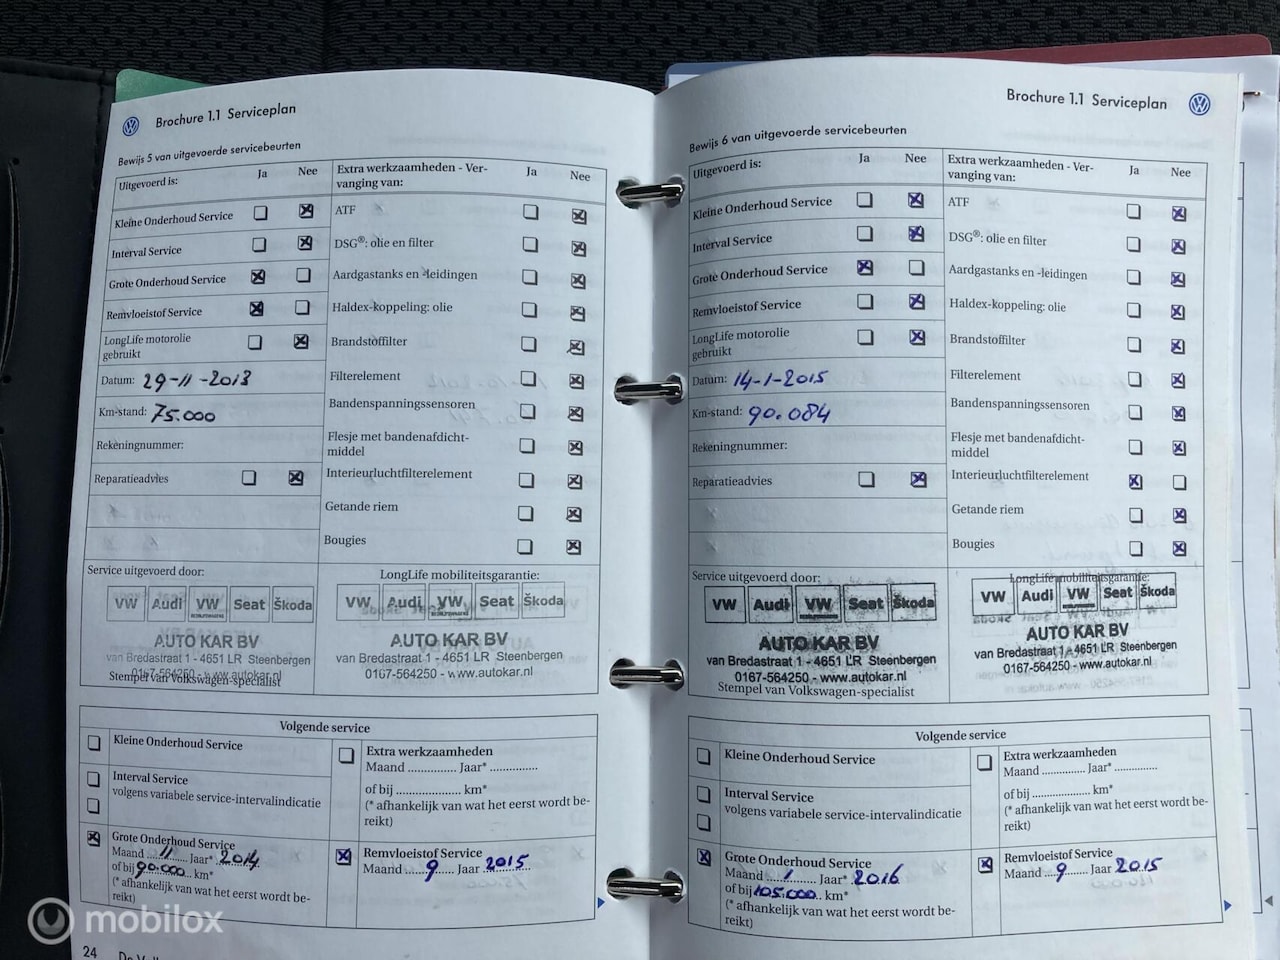 Brochure 1.1 Serviceplan
Bewijs 5 van uitgevoerde servicebeurten
Uitgevoerd is:
Ja
Nee
Extra werkzaamheden - Ver-
vanging van:
Ja
Nee
Kleine Onderhoud Service
ATF
Interval Service
DSG®: olie en filter
Grote Onderhoud Service
Aardgastanks en -leidingen
Remvloeistof Service
Haldex-koppeling: olie
LongLife motorolie
gebruikt
Brandstoffilter
Datum: 29-11-2013
Filterelement
Km-stand: 75.000
Bandenspanningssensoren
Rekeningnummer:
Flesje met bandenafdicht-
middel
Reparatieadvies
Interieurluchtfilterelement
Getande riem
Bougies
Service uitgevoerd door:
VW Audi VW Seat Škoda
AUTO KAR BV
van Bredastraat 1 - 4651 LR Steenbergen
0167-564250 - www.autokar.nl
Stempel van Volkswagen-specialist
LongLife mobiliteitsgarantie:
VW Audi VW Seat Škoda
AUTO KAR BV
van Bredastraat 1 - 4651 LR Steenbergen
0167-564250 - www.autokar.nl
Volgende service
Kleine Onderhoud Service
Interval Service
volgens variabele service-intervalindicatie
Grote Onderhoud Service
Maand 11 Jaar* 2014
of bij 90.000 km*
(* afhankelijk van wat het eerst wordt be-
reikt)
Extra werkzaamheden
Maand ............... Jaar* ...............
of bij ..................... km*
(* afhankelijk van wat het eerst wordt be-
reikt)
Remvloeistof Service
Maand 9 Jaar 2015
24
Brochure 1.1 Serviceplan
Bewijs 6 van uitgevoerde servicebeurten
Uitgevoerd is:
Ja
Nee
Extra werkzaamheden - Ver-
vanging van:
Ja
Nee
Kleine Onderhoud Service
ATF
Interval Service
DSG®: olie en filter
Grote Onderhoud Service
Aardgastanks en -leidingen
Remvloeistof Service
Haldex-koppeling: olie
LongLife motorolie
gebruikt
Brandstoffilter
Datum: 14-1-2015
Filterelement
Km-stand: 90.084
Bandenspanningssensoren
Rekeningnummer:
Flesje met bandenafdicht-
middel
Reparatieadvies
Interieurluchtfilterelement
Getande riem
Bougies
Service uitgevoerd door:
VW Audi VW Seat Škoda
AUTO KAR BV
van Bredastraat 1 - 4651 LR Steenbergen
0167-564250 - www.autokar.nl
Stempel van Volkswagen-specialist
LongLife mobiliteitsgarantie:
VW Audi VW Seat Škoda
AUTO KAR BV
van Bredastraat 1 - 4651 LR Steenbergen
0167-564250 - www.autokar.nl
Volgende service
Kleine Onderhoud Service
Interval Service
volgens variabele service-intervalindicatie
Grote Onderhoud Service
Maand 1 Jaar* 2016
of bij 105.000 km*
(* afhankelijk van wat het eerst wordt be-
reikt)
Extra werkzaamheden
Maand ............... Jaar* ...............
of bij ..................... km*
(* afhankelijk van wat het eerst wordt be-
reikt)
Remvloeistof Service
Maand 9 Jaar 2015
mobilox